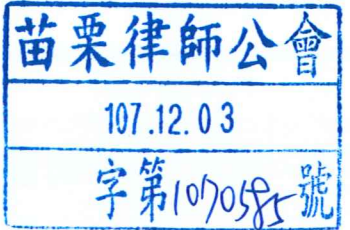 苗栗律師公會
107.12.03
字第1070585號